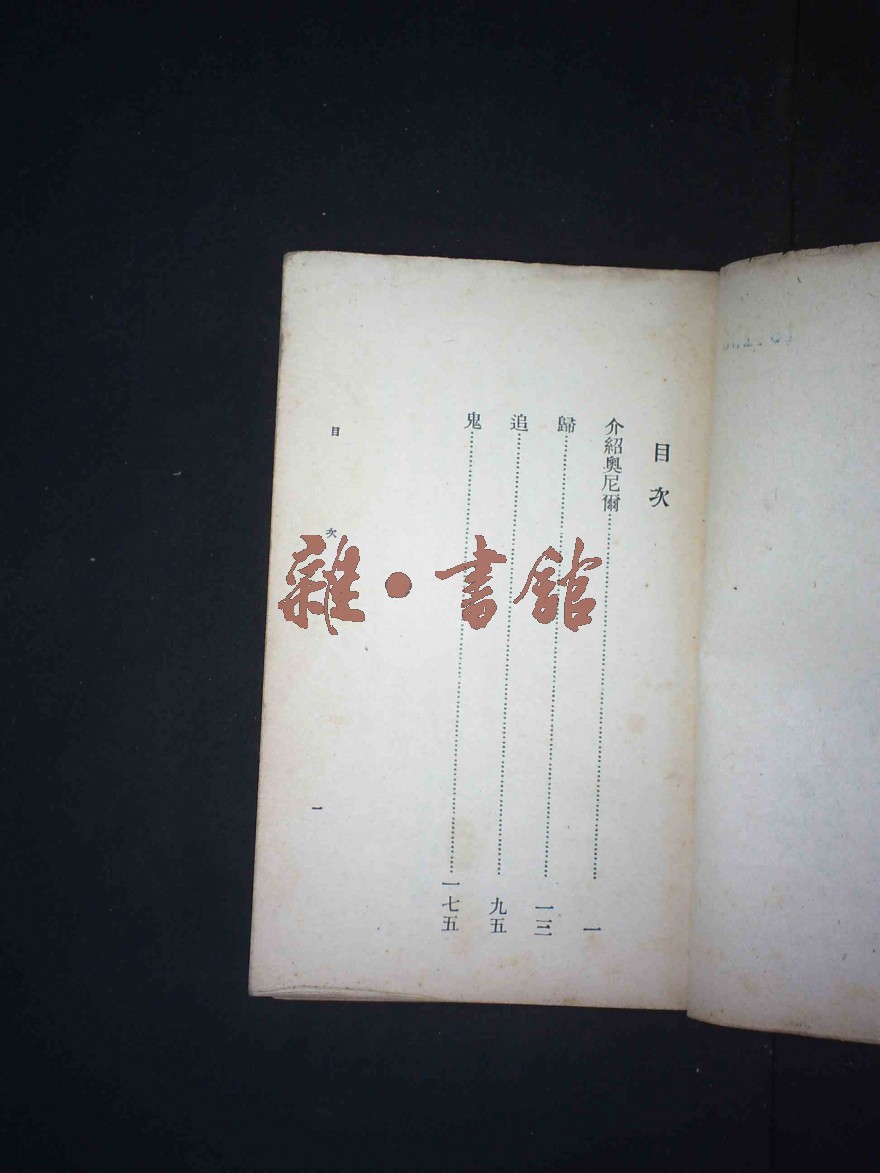 目次
介紹奧尼爾……一
歸……一三
追……九五
鬼……一七五
目次
一
雜·書館